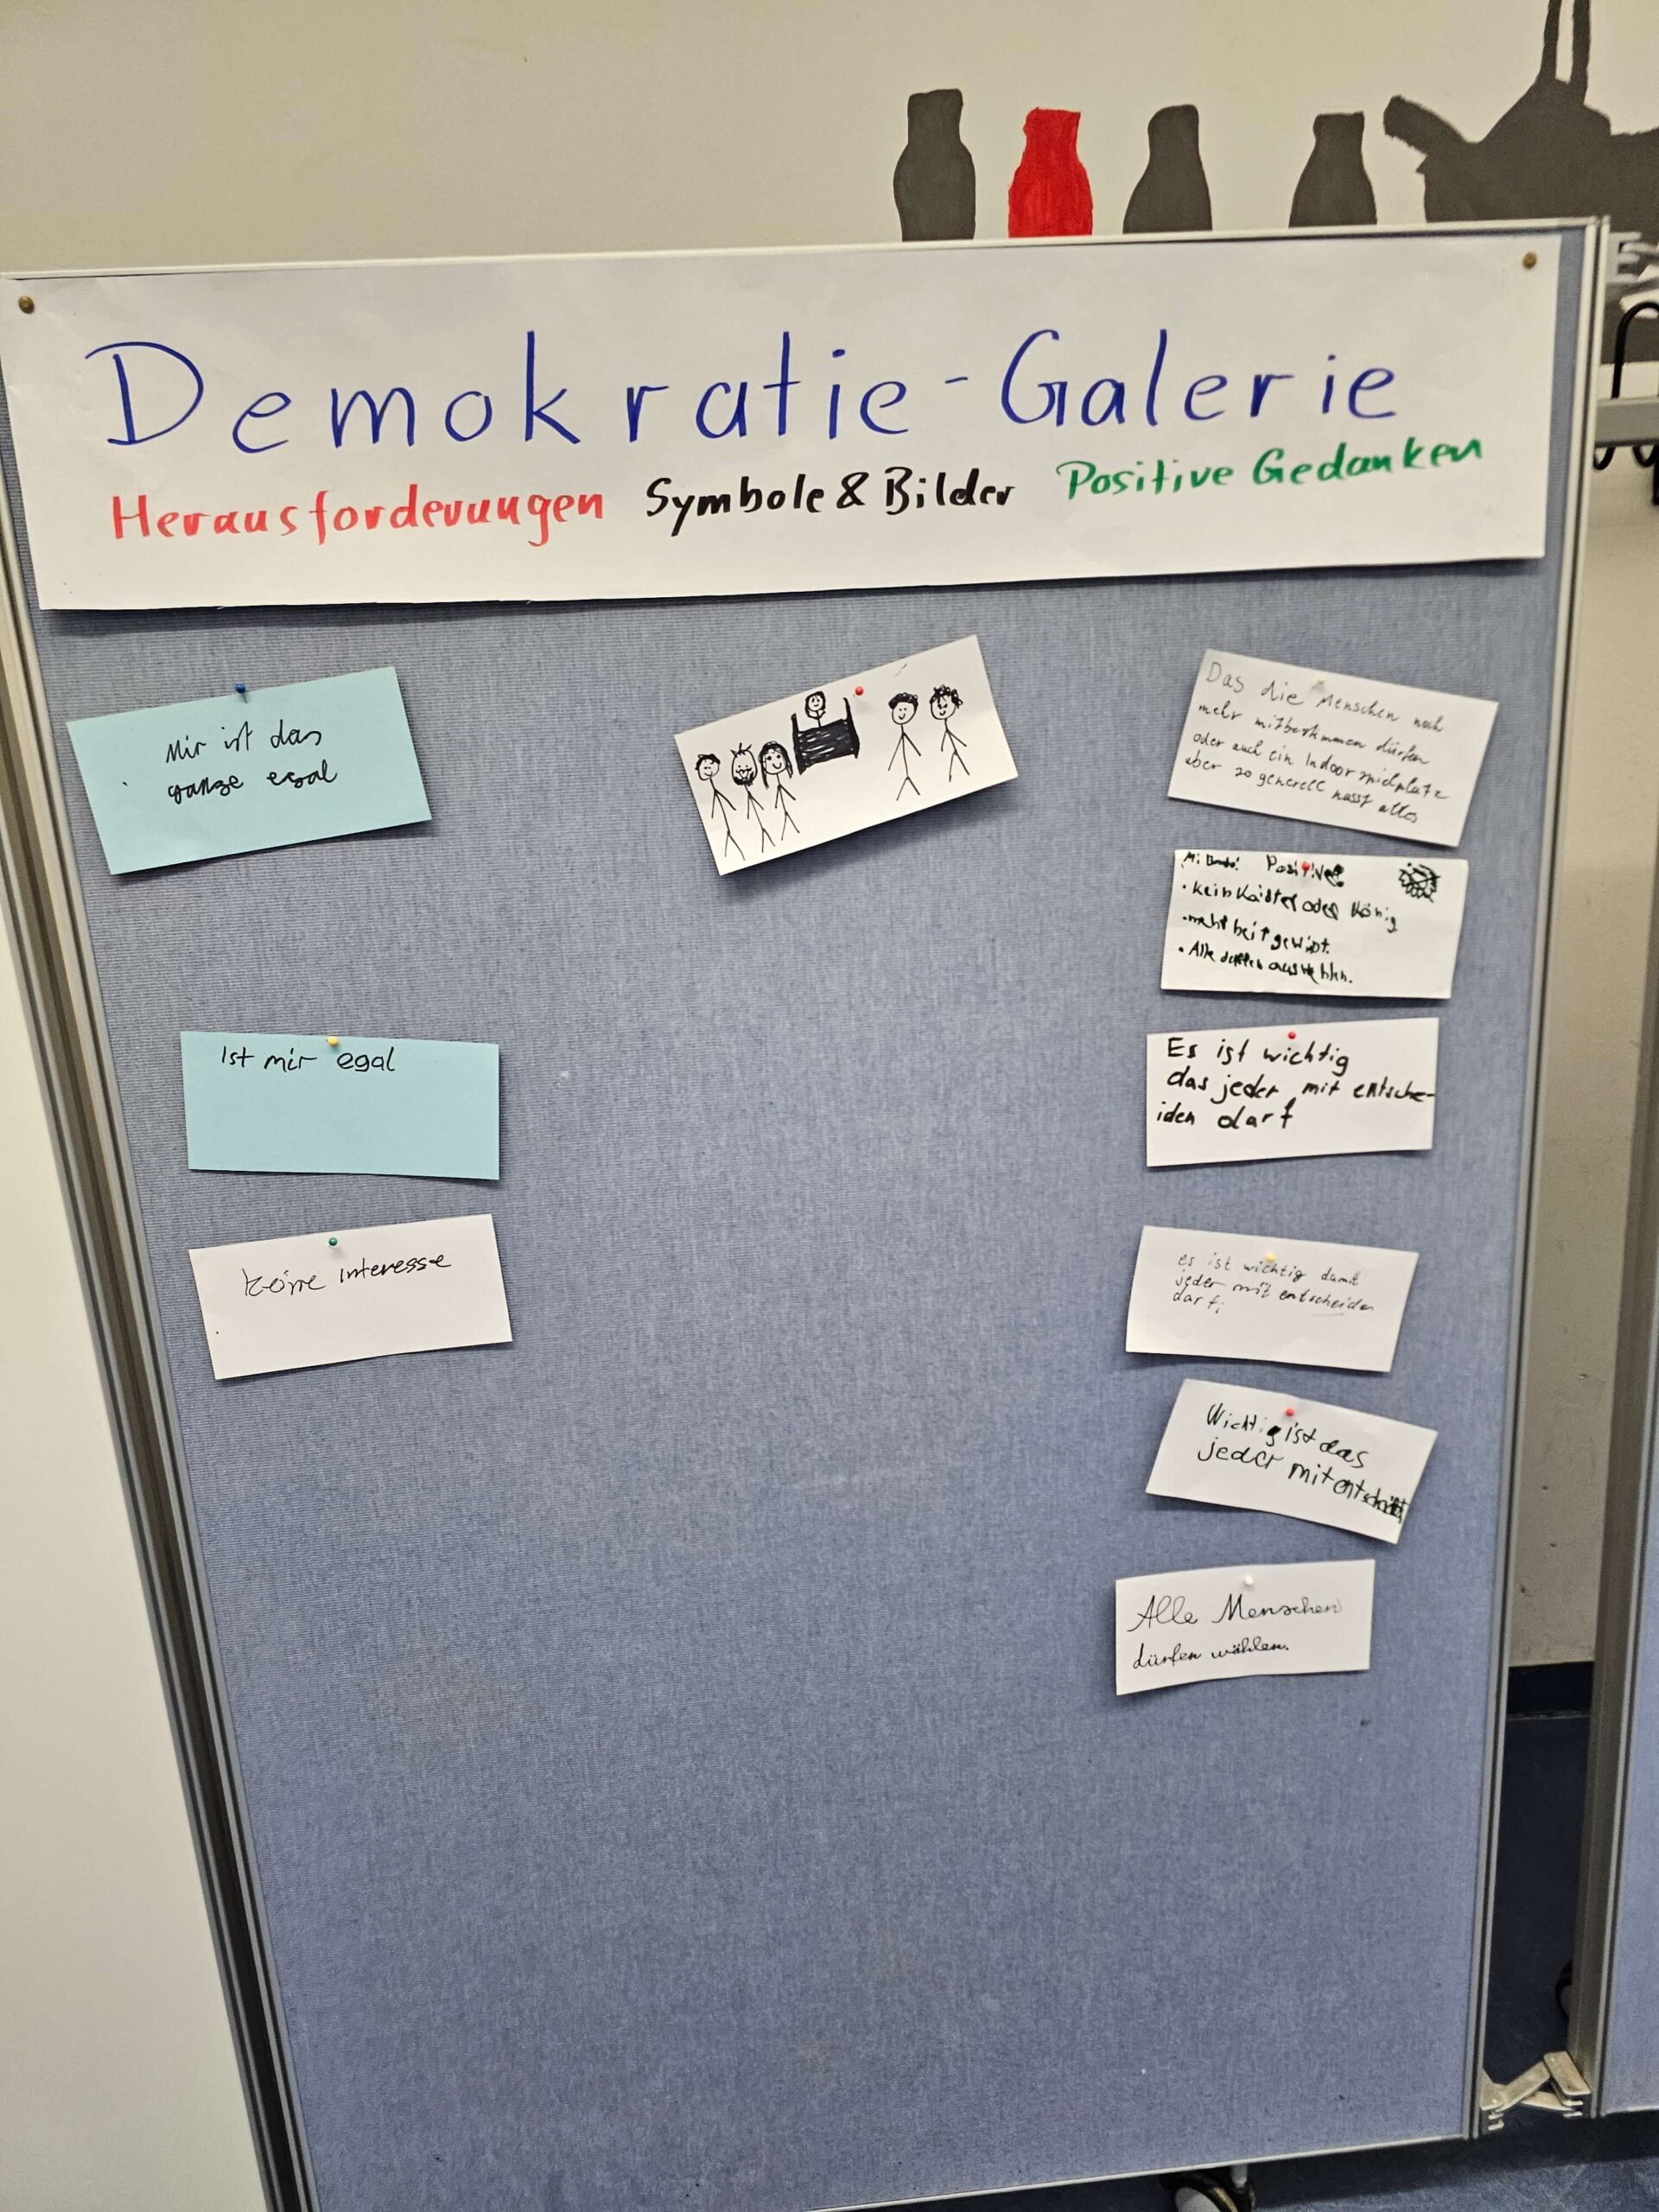 Demokratie-Galerie
Herausforderungen Symbole & Bilder Positive Gedanken
Mir ist das
ganze egal
Ist mir egal
keine interesse
Das die Menschen noch
mehr mitbestimmen dürfen
oder auch ein Indoorspielplatz
aber so generell passt alles
Positive
• kein Kaister oder König
• Alle durfen auswehlen.
Es ist wichtig
das jeder mit entsche-
iden darf
es ist wichtig damit
jeder mit entscheiden
darf;
Wichtig ist das
jeder mit
Alle Menschen
dürfen wählen.